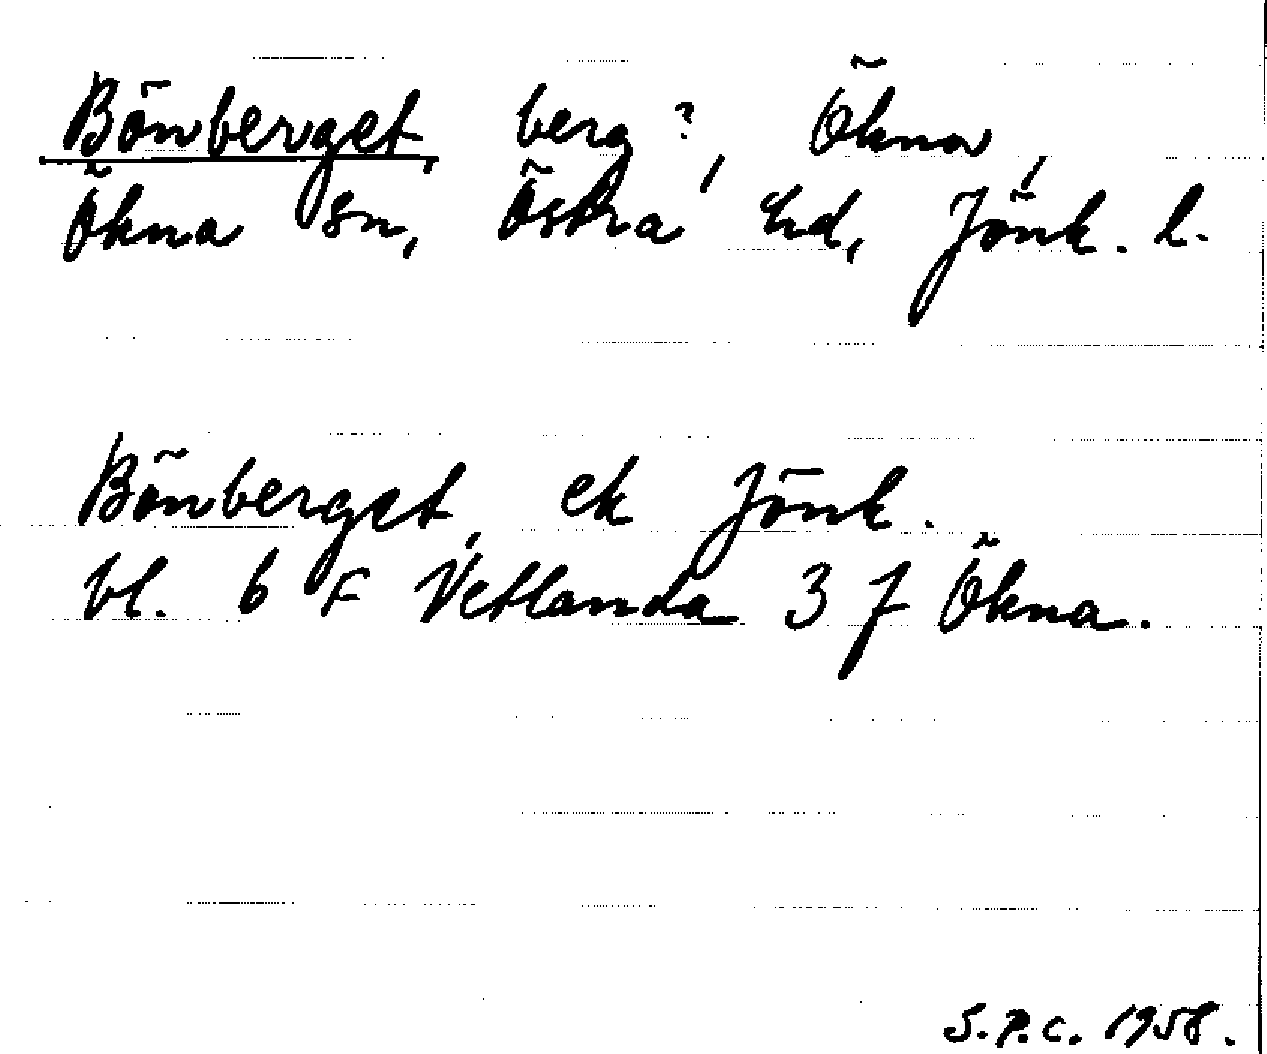 Bönberget, berg?, Ökna,
Ökna sn, Östra hd, Jönk. l.
Bönberget, ek Jönk.
bl. 6 F Vetlanda 3 f Ökna.
S.P.C. 1958.